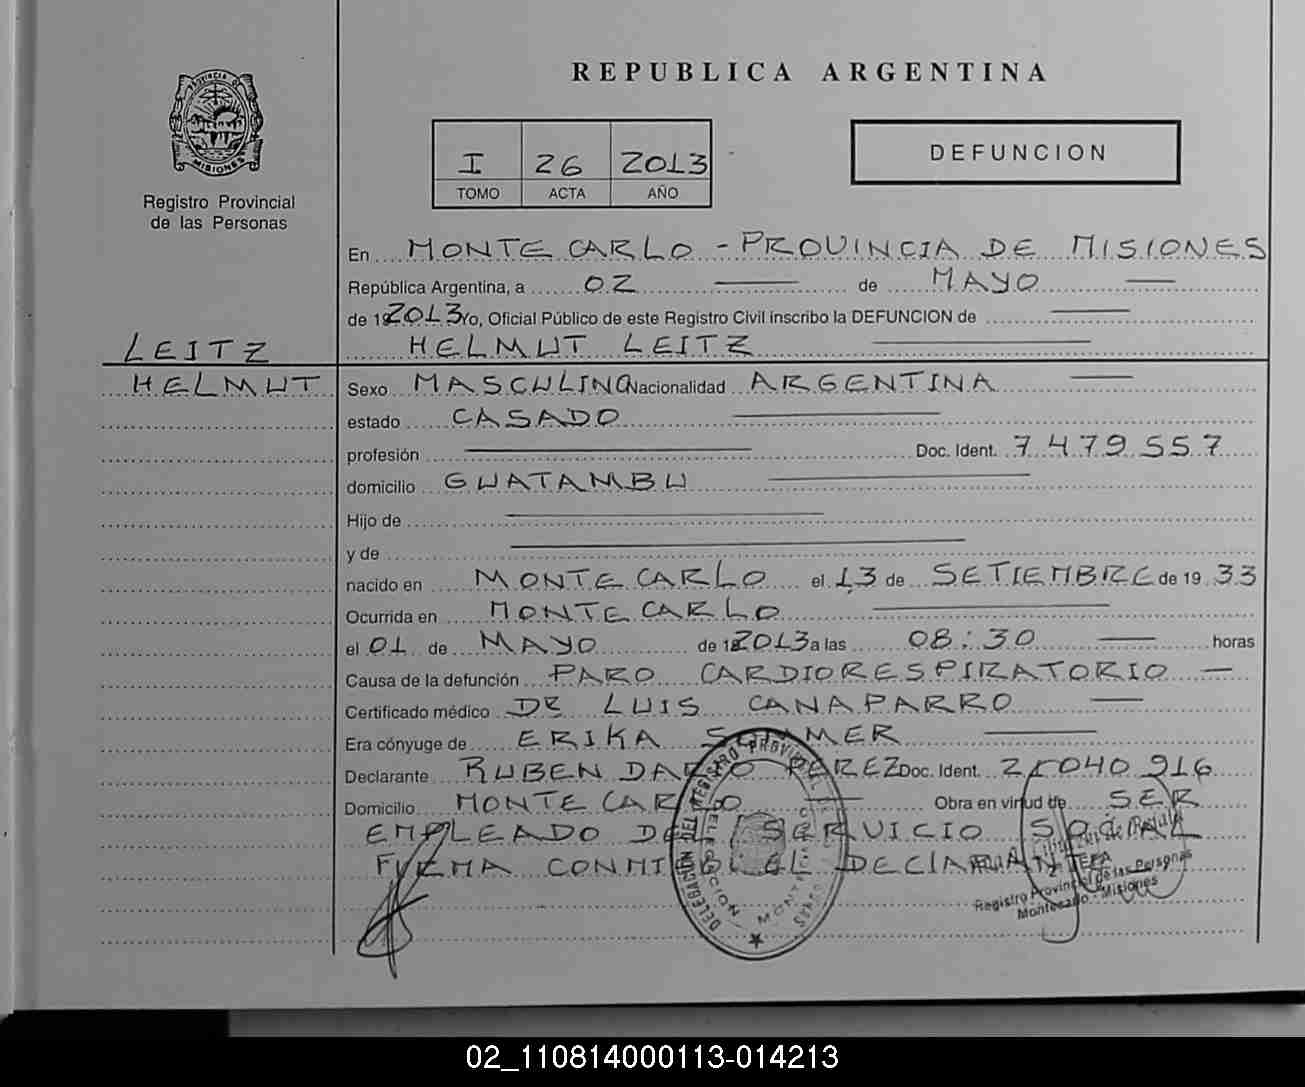 REPUBLICA ARGENTINA
PROVINCIA DE
MISIONES
Registro Provincial
de las Personas
I 26 2013
TOMO ACTA AÑO
DEFUNCION
En MONTE CARLO - PROVINCIA DE MISIONES
República Argentina, a 02 de MAYO
de 2013 Yo, Oficial Público de este Registro Civil inscribo la DEFUNCION de
LEITZ
HELMUT
HELMUT LEITZ
Sexo MASCULINO Nacionalidad ARGENTINA
estado CASADO
profesión Doc. Ident. 7479557
domicilio GUATAMBU
Hijo de
y de
nacido en MONTE CARLO el 13 de SETIEMBRE de 19 33
Ocurrida en MONTE CARLO
el 01 de MAYO de 2013 a las 08:30 horas
Causa de la defunción PARO CARDIORESPIRATORIO
Certificado médico DR LUIS CANAPARRO
Era cónyuge de ERIKA SOMMER
Declarante RUBEN DARIO PEREZ Doc. Ident. 21040916
Domicilio MONTE CARLO Obra en virtud de SER
EMPLEADO DEL SERVICIO SOCIAL
FIRMA CONMIGO EL DECLARANTE
Registro Provincial de las Personas
Montecarlo - Misiones
02_110814000113-014213